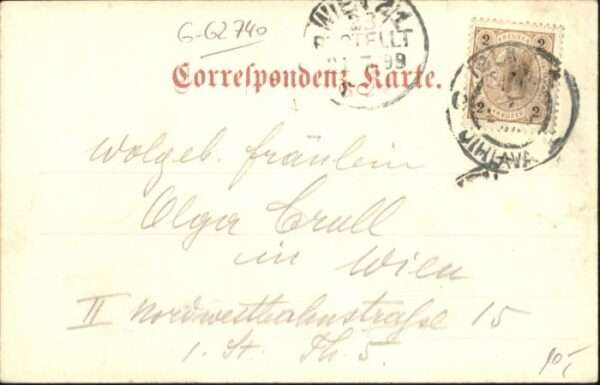 G-G2740
WIEN
BESTELLT
99
2 2
Correspondenz-Karte.
2 KREUZER 2
JIHLAVA
Wolgeb. Fräulein
Olga Crull
in Wien
II Nordwestbahnstraße 15
1. St. Th. 5.
10,-